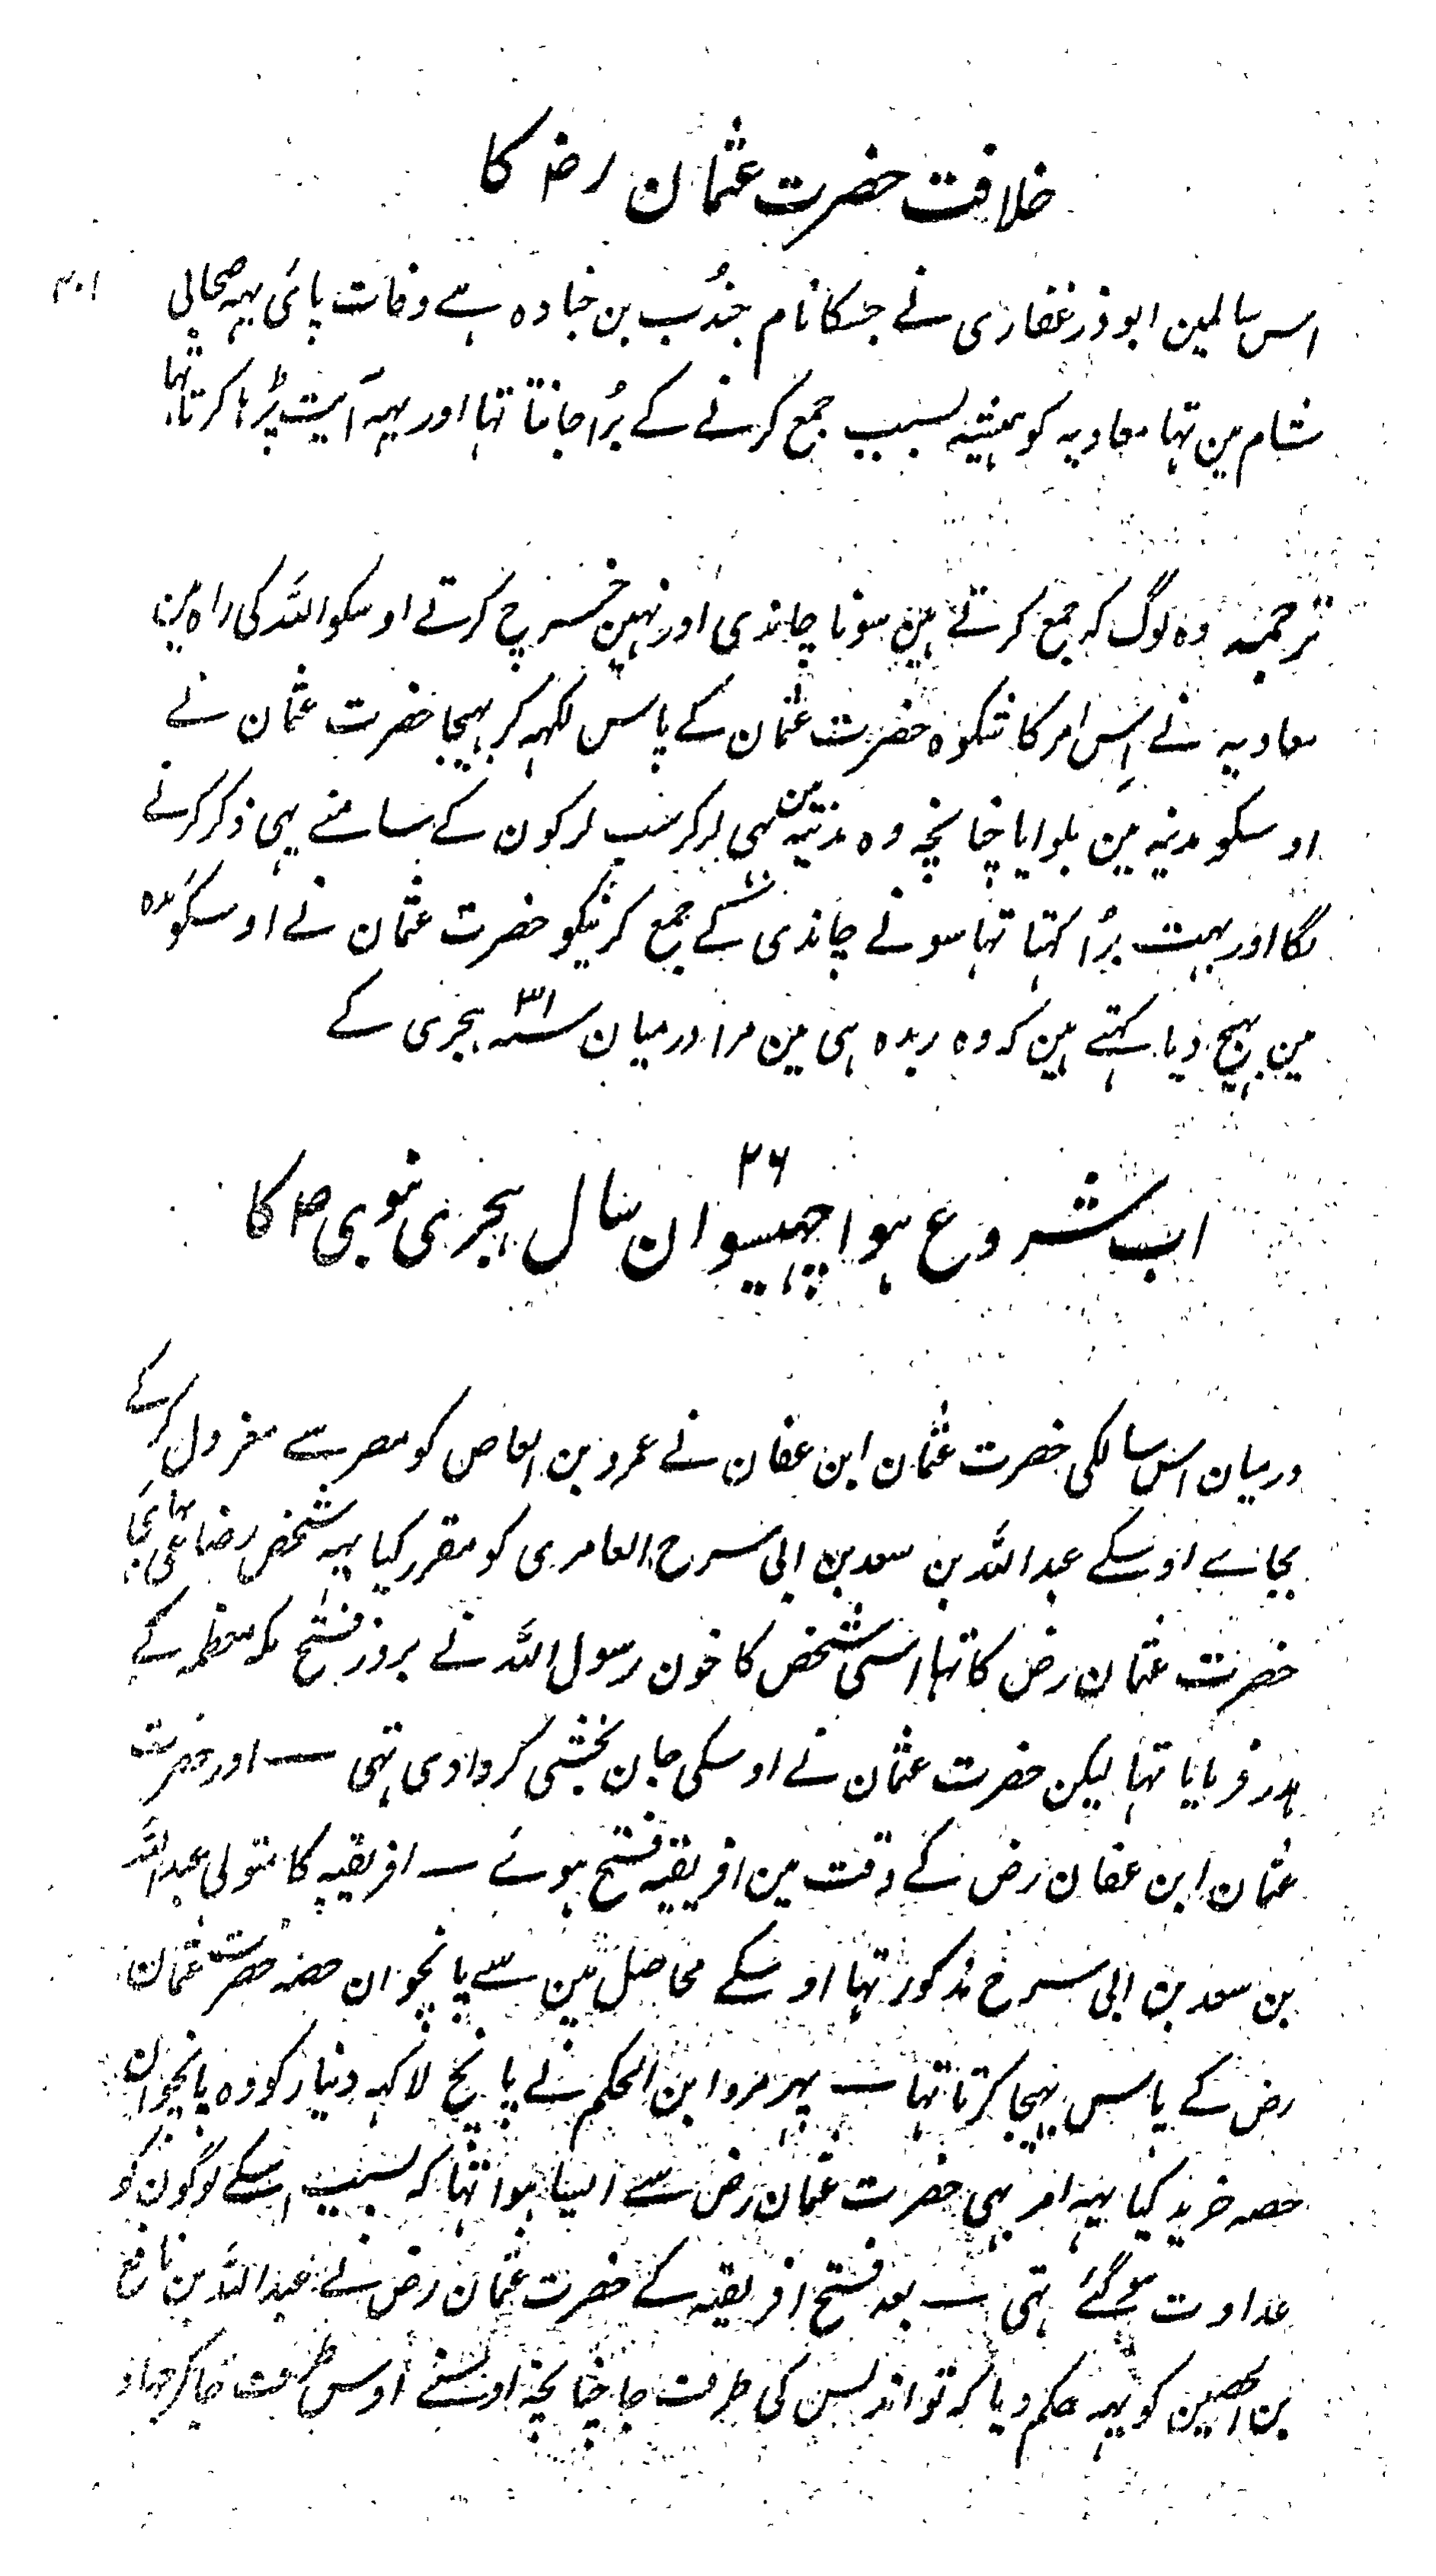 خلافت حضرت عثمان رض کا
۳۰۱
اس سالمین ابوذر غفاری نے جسکا نام جندُب بن جنادہ ہے وفات پائی یہہ صحابی
شام مین تہا معاویہ کو ہمیشہ بسبب جمع کرنے کے بُرا جانتا تہا اور یہہ آیت پڑہا کرتا تہا
ترجمہ وہ لوگ کہ جمع کرتے ہین سونا چاندی اور نہین خرچ کرتے اوسکو اللہ کی راہ مین
معاویہ نے اِس امر کا شکوہ حضرت عثمان کے پاس لکہہ کر بہیجا حضرت عثمان نے
اوسکو مدینہ مین بلوایا چنانچہ وہ مدینہ مین بہی لوگون کے سامنے یہی ذکر کرنے
لگا اور بہت بُرا کہتا تہا سونے چاندی کے جمع کرنیکو حضرت عثمان نے اوسکو ربدہ
مین بہیج دیا کہتے ہین کہ وہ ربدہ ہی مین مرا درمیان ۳۱ سنہ ہجری کے
اب شروع ہوا چہبیسوان ۲۶ سال ہجری نبوی ص کا
درمیان اس سالکی حضرت عثمان ابن عفان نے عمرو بن العاص کو مصر سے معزول کرکے
بجاے اوسکے عبد اللہ بن سعد بن ابی سرح العامری کو مقرر کیا یہہ شخص رضاعی بہائی
حضرت عثمان رض کا تہا اسی شخص کا خون رسول اللہ نے بروز فتح مکہ معظمہ کے
ہدر فرمایا تہا لیکن حضرت عثمان نے اوسکی جان بخشی کروادی تہی — اور حضرت
عثمان ابن عفان رض کے وقت مین افریقیہ فتح ہوئے — افریقیہ کا متولی عبد اللہ
بن سعد بن ابی سرح مذکور تہا اوسکے محاصل مین سے پانچوان حصہ حضرت عثمان
رض کے پاس بہیجا کرتا تہا — پہر مروا ابن الحکم نے پانچ لاکہہ دینار کو وہ پانچوان
حصہ خرید کیا یہہ امر بہی حضرت عثمان رض سے ایسا ہوا تہا کہ بسبب اسکے لوگون کو
عداوت ہو گئے تہی — بعد فتح افریقیہ کے حضرت عثمان رض نے عبد اللہ بن نافع
بن الحصین کو یہہ حکم دیا کہ تو اندلس کی طرف جا چنانچہ اوسنے اوس طرف جا کر جہاد